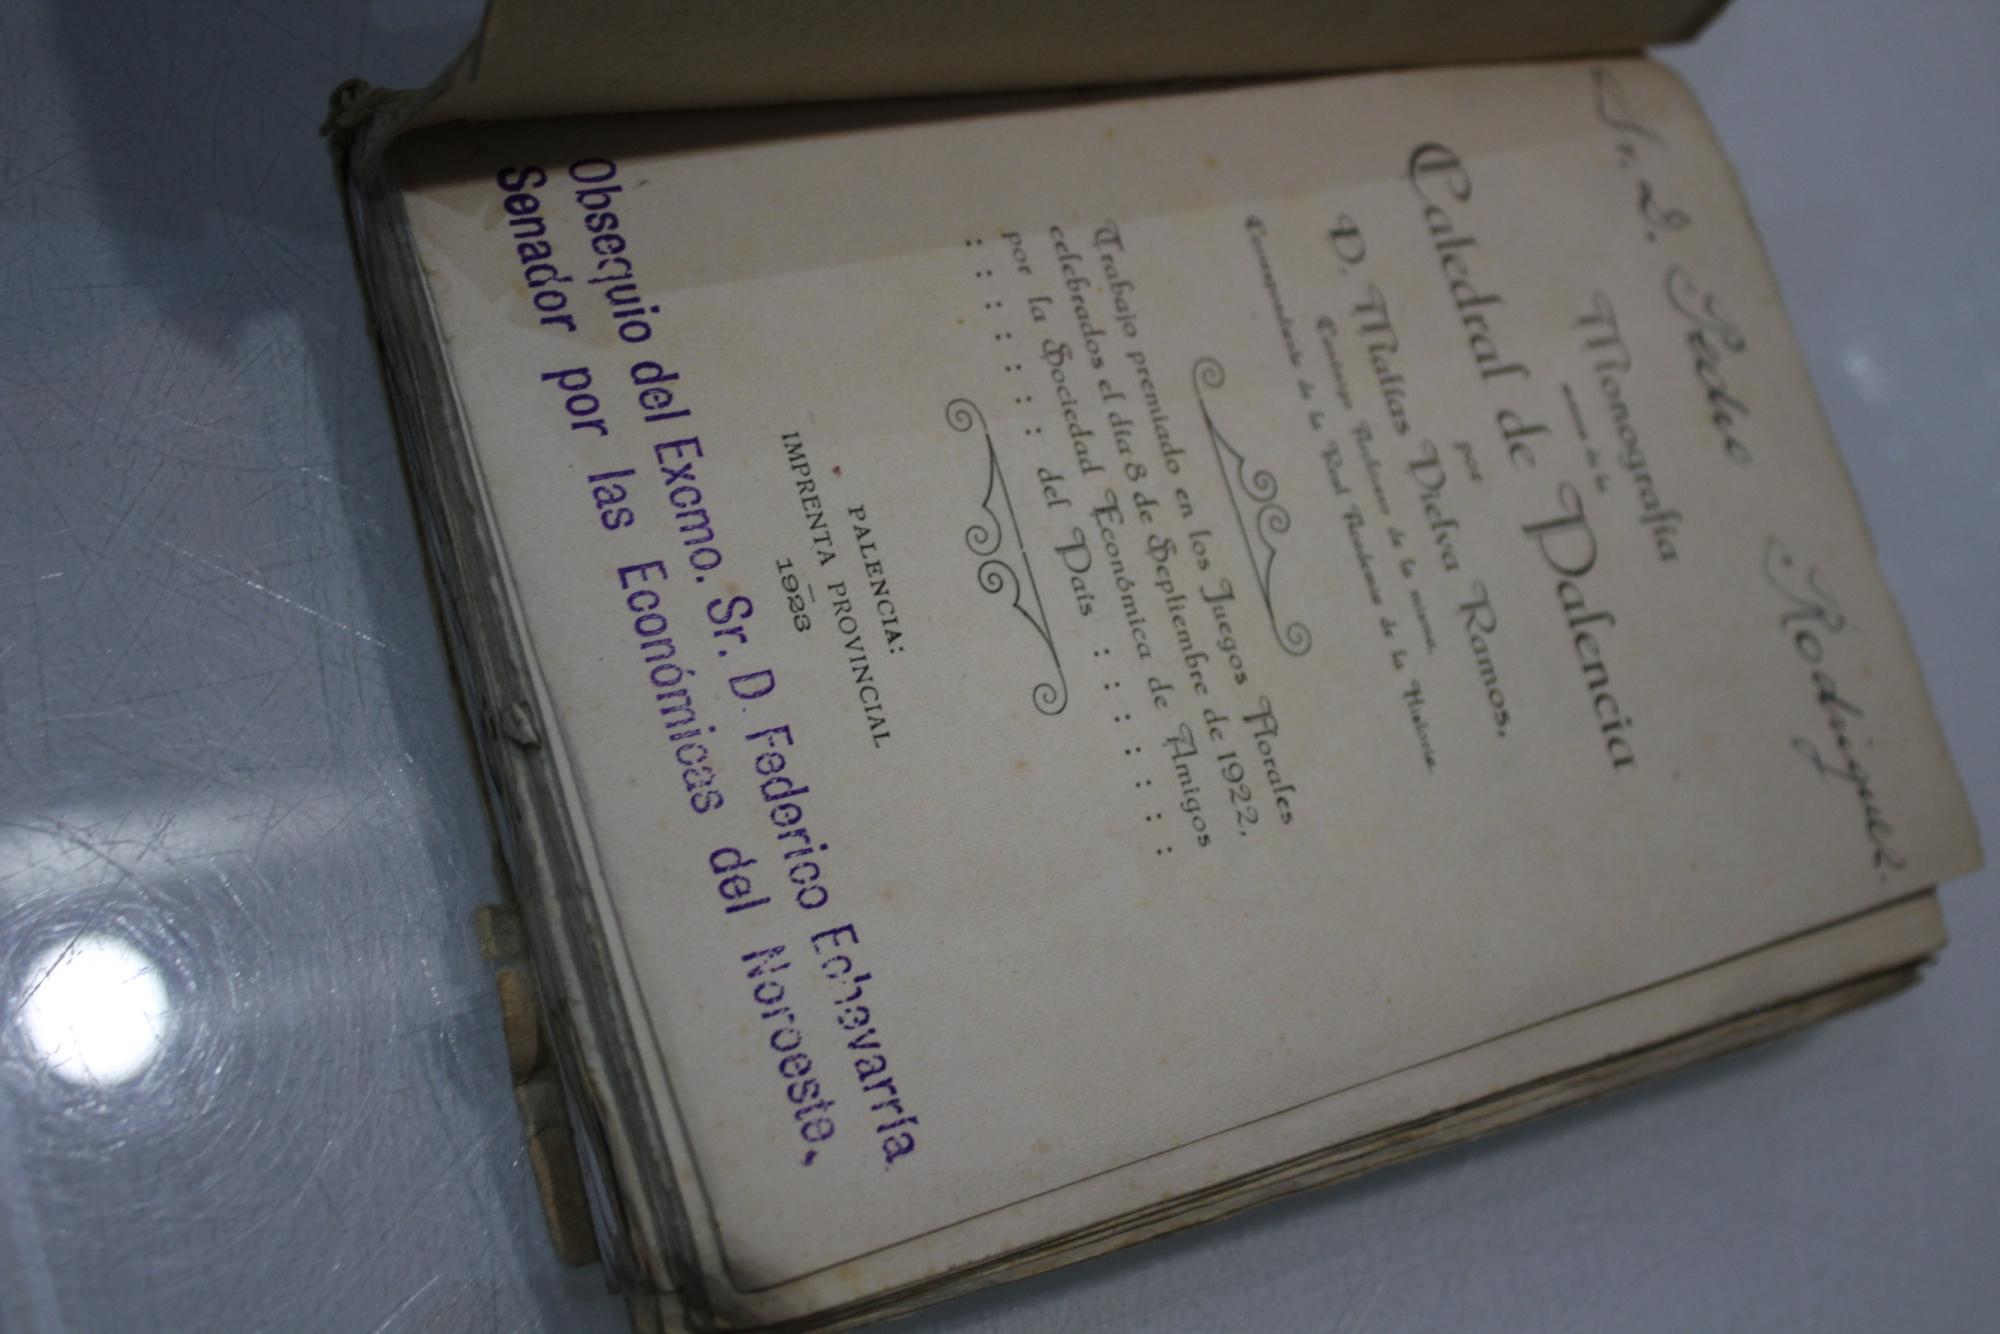 Sr. D. Pedro Rodríguez.
Monografía
de la
Catedral de Palencia
por
D. Matías Vielva Ramos,
Canónigo Archivero de la misma,
Correspondiente de la Real Academia de la Historia.
Trabajo premiado en los Juegos Florales
celebrados el día 8 de Septiembre de 1922,
por la Sociedad Económica de Amigos
: : : : : : : del País : : : : : : :
PALENCIA:
IMPRENTA PROVINCIAL
1923
Obsequio del Excmo. Sr. D. Federico Echevarría.
Senador por las Económicas del Noroeste.